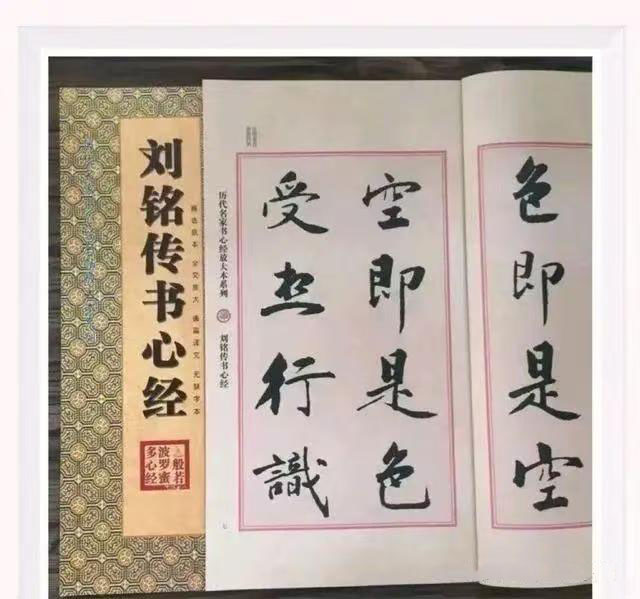 刘铭传书心经
精选底本 全文放大 通篇译文 无缺字本
般若
波罗蜜
多心经
色即是空
空即是色
受想行識
历代名家书心经放大本系列
刘铭传书心经
七